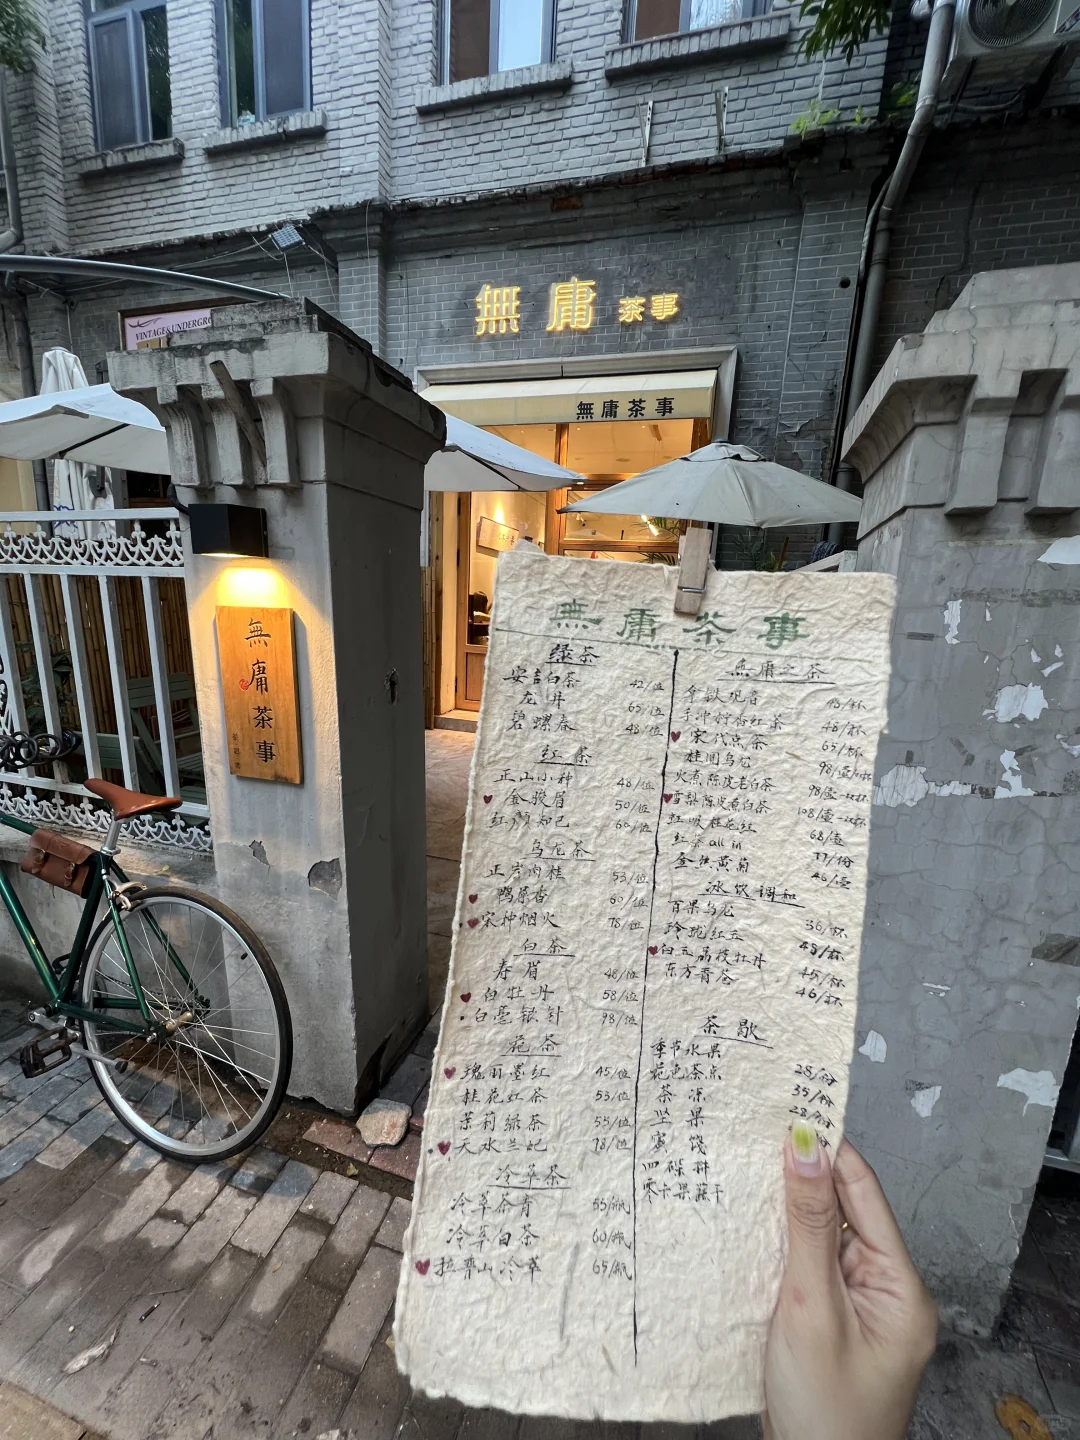 無庸茶事
無庸茶事
VINTAGE&UNDERGRO
無庸茶事
無庸茶事
绿茶
安吉白茶 42/位
龙井 65/位
碧螺春 48/位
红茶
正山小种 48/位
金骏眉 50/位
红颜知己 60/位
乌龙茶
正岩肉桂 53/位
鸭屎香 60/位
宋种烟火 78/位
白茶
寿眉 48/位
白牡丹 58/位
白毫银针 98/位
花茶
瑰丽墨红 45/位
桂花红茶 55/位
茉莉绿茶 55/位
天水兰妃 78/位
冷萃茶
冷萃茶青 55/瓶
冷萃白茶 60/瓶
拉乔山冷萃 65/瓶
無庸之茶
铁观音 48/杯
手冲村香红茶 48/杯
宋代点茶 65/杯
桂圆乌龙 98/壶
火煮陈皮老白茶 98/壶
雪梨陈皮煮白茶 108/壶
虹吸桂花红 68/壶
红茶all in 77/份
金丝黄菊 46/壶
冰饮调和
百果乌龙 36/杯
玲珑红豆 48/杯
白玉荔枝牡丹 45/杯
东方青苔 46/杯
茶歇
季节水果 28/份
花色茶点 35/份
茶冻 28/份
坚果
蜜饯
四碟拼
零卡果蔬干